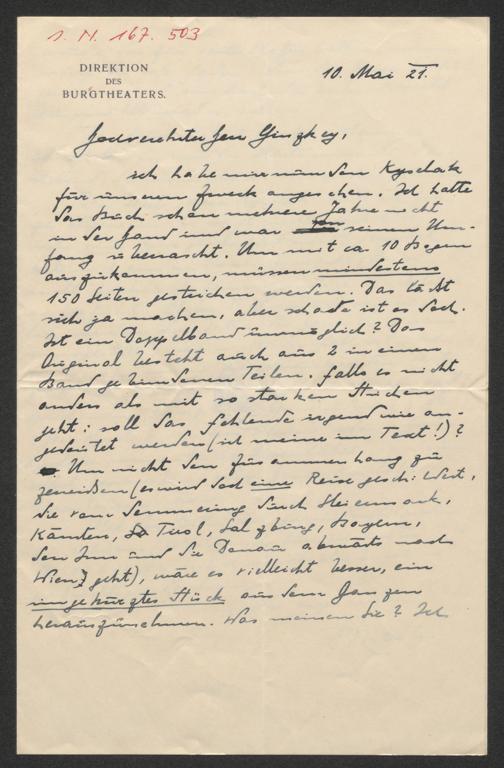 I. N. 167.503
DIREKTION
DES
BURGTHEATERS.
10. Mai 21.
Hochverehrter Herr Ginzkey,
ich habe mir nun den Kyselak
für unseren Zweck angesehen. Ich hatte
das Buch schon mehrere Jahre nicht
in der Hand und war von seinem Um-
fang überrascht. Um mit ca 10 Bogen
auszukommen, müssen mindestens
150 Seiten gestrichen werden. Das lässt
sich ja machen, aber schade ist es doch.
Ist ein Doppelband unmöglich? Das
Original besteht auch aus 2 in einem
Band gebundenen Teilen. Falls es nicht
anders als mit so starken Strichen
geht: soll das fehlende irgendwie an-
gedeutet werden (ich meine im Text!)?
Um nicht den Zusammenhang zu
zerreißen (es wird doch eine Reise gesch: dert,
die vom Semmering durch Steiermark,
Kärnten, Tirol, Salzburg, Bayern,
den Inn und die Donau abwärts nach
Wien geht), wäre es vielleicht besser, ein
ungekürztes Stück aus dem Ganzen
herauszunehmen. Was meinen Sie? Ich